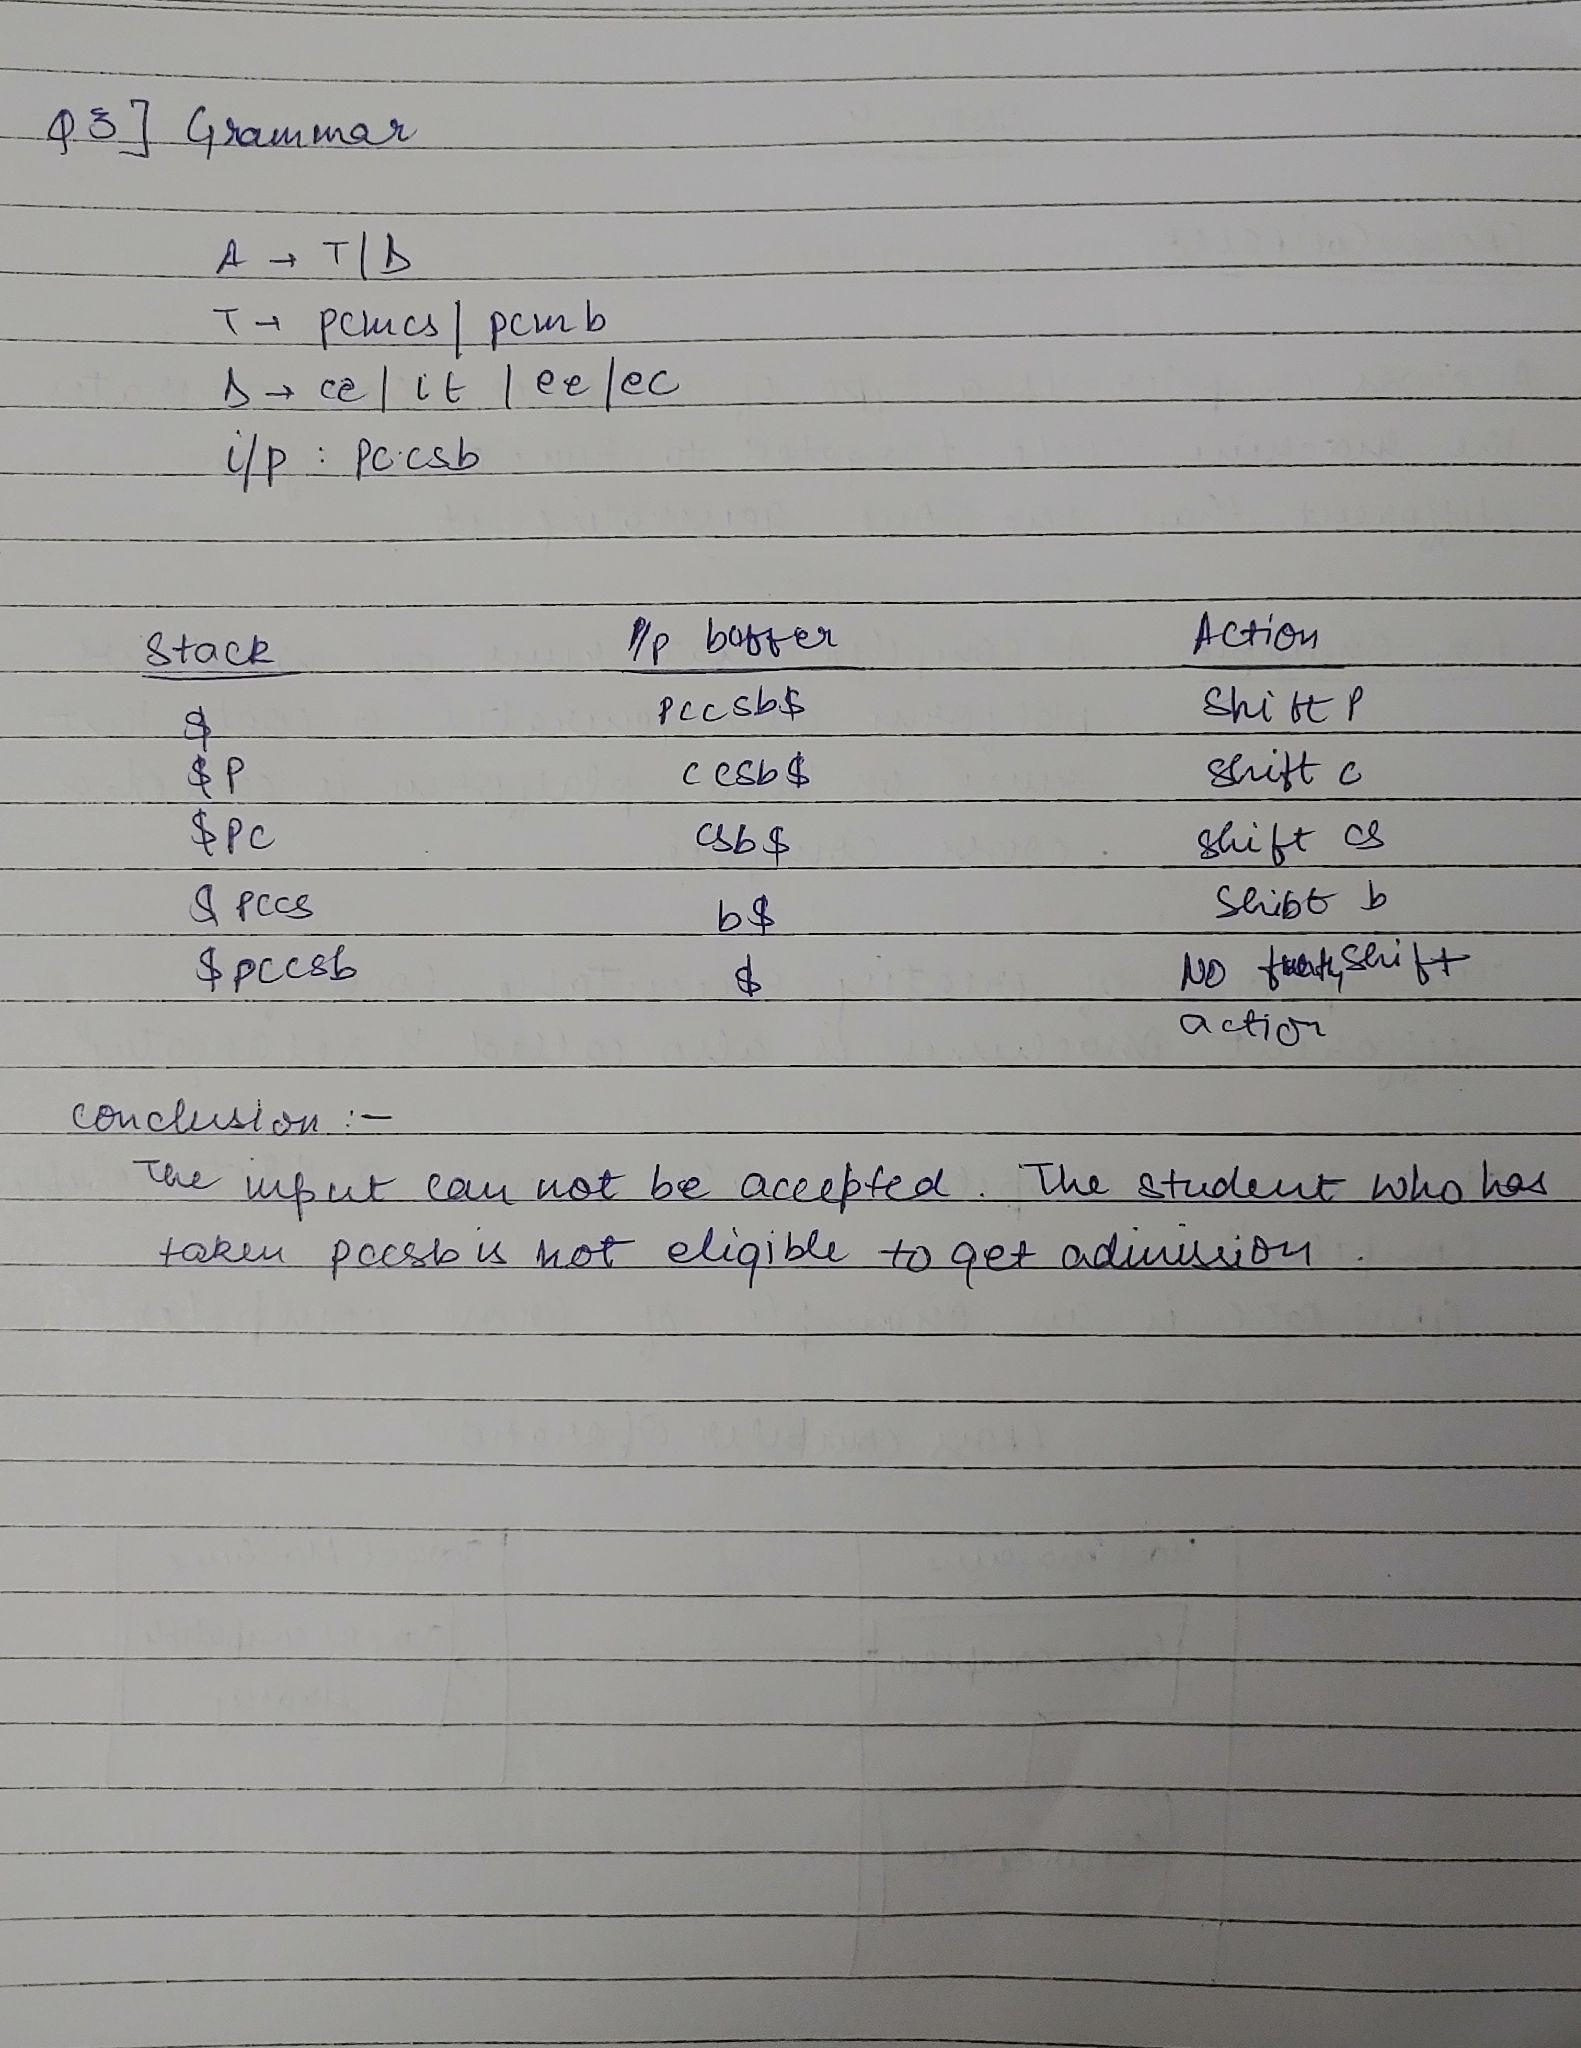 Q3] Grammar
A → T|D
T → pcmcs | pcmb
D → ce | it | ee | ec
i/p : pccsb
Stack I/p buffer Action
$ pccsb$ Shift p
$p ccsb$ Shift c
$pc csb$ Shift cs
$pccs b$ Shift b
$pccsb $ No Shift
action
Conclusion :-
The input can not be accepted. The student who has
taken pccsb is not eligible to get admission.